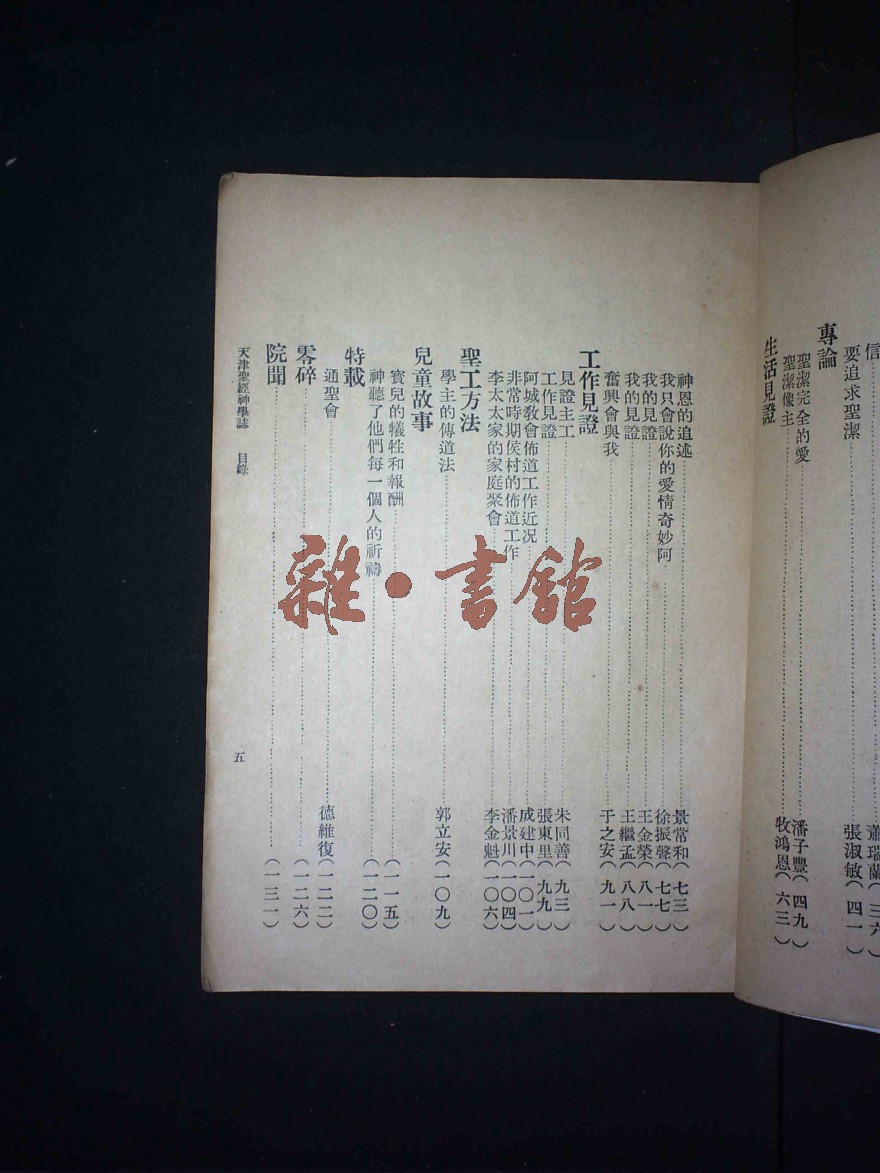 信……蕭瑞蘭(三六)
要追求聖潔……張淑敏(四一)
專論
聖潔完全的愛……潘子豐(四九)
聖潔像主……牧鴻恩(六三)
生活見證
神恩的追述……景常和(七三)
我只會說你的愛情奇妙阿……徐振聲(七七)
我的見證……王金榮(八一)
我的見證……王繼孟(八八)
奮興會與我……于之安(九一)
工作見證
見證主工……朱同善(九三)
工作見證……張東里(九九)
阿城教會佈道工作近况……成建中(一〇一)
非常時期侯村的佈道工作……潘景川(一〇四)
李太太家的家庭聚會……李金魁(一〇六)
聖工方法
學主的傳道法……郭立安(一〇九)
兒童故事
寶兒的犠牲和報酬……(一一五)
特載
神聽了他們每一個人的祈禱……(一二〇)
通聖會……德維復(一二二)
零碎……(一二六)
院聞……(一三一)
天津聖經神學誌 目錄
五
雜·書館